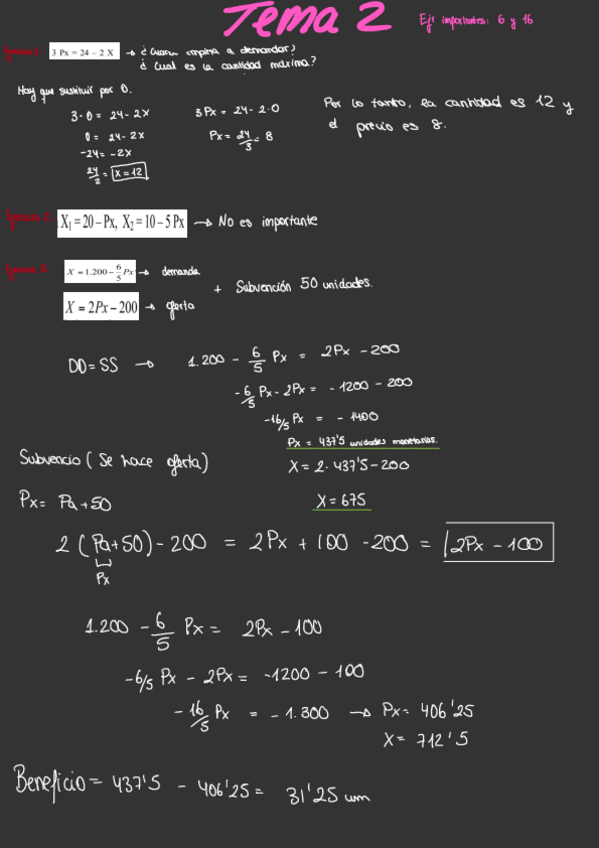 Tema 2
Ejs importantes: 6 y 16
3 Px = 24 – 2 X → ¿Cuando empieza a demandar?
¿Cual es la cantidad máxima?
Hay que sustituir por 0.
3·0 = 24 - 2X
0 = 24 - 2X
-24 = -2X
24/2 = X = 12
3Px = 24 - 2·0
Px = 24/3 = 8
Por lo tanto, la cantidad es 12 y
el precio es 8.
Ejercicio 2: X₁ = 20 – Px, X₂ = 10 – 5 Px → No es importante
Ejercicio 3: X = 1.200 – 6/5 Px → demanda
X = 2Px – 200 → oferta
+ Subvención 50 unidades.
DD = SS → 1.200 - 6/5 Px = 2Px - 200
-6/5 Px - 2Px = -1200 - 200
-16/5 Px = -1400
Px = 437'5 unidades monetarias.
X = 2·437'5 - 200
X = 675
Subvencio (Se hace oferta)
Px = Pa + 50
2 (Pa + 50) - 200 = 2Px + 100 - 200 = 2Px - 100
Px
1.200 - 6/5 Px = 2Px - 100
-6/5 Px - 2Px = -1200 - 100
-16/5 Px = -1.300 → Px = 406'25
X = 712'5
Beneficio = 437'5 - 406'25 = 31'25 um